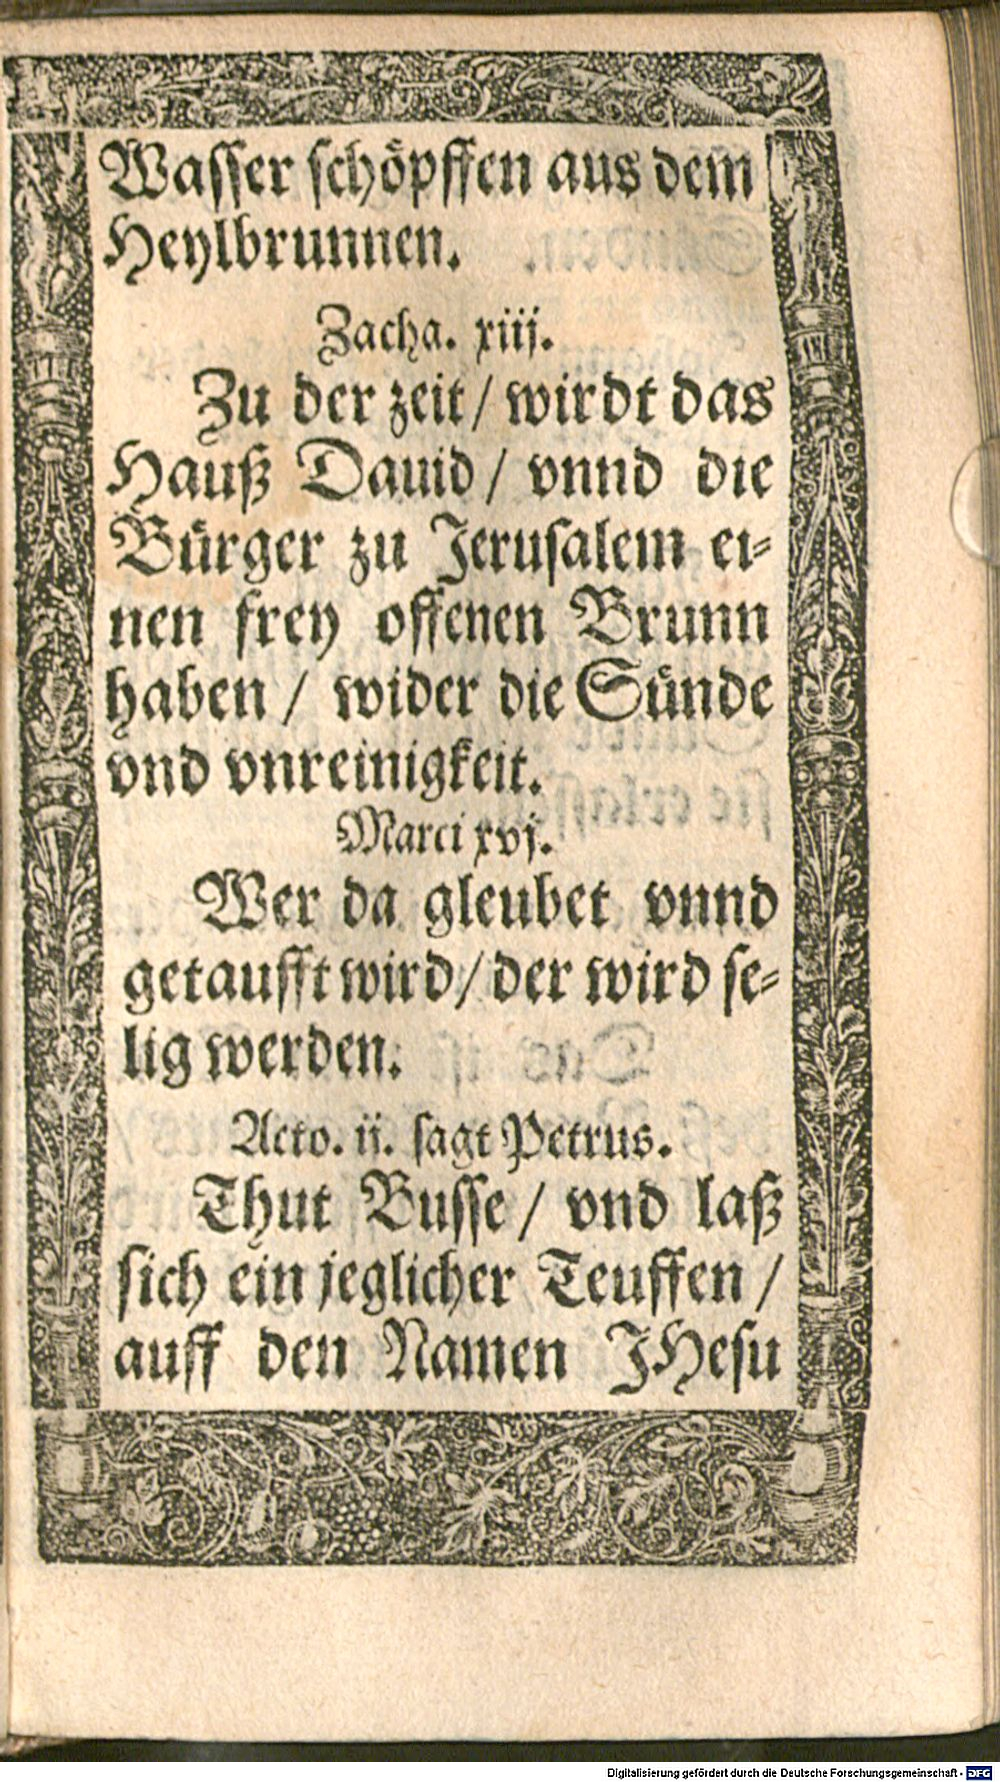 Wasser schöpffen aus dem
Heylbrunnen.
Zacha. xiij.
Zu der zeit / wirdt das
Hauß Dauid / vnnd die
Bürger zu Jerusalem ei-
nen frey offenen Brunn
haben / wider die Sünde
vnd vnreinigkeit.
Marci xvj.
Wer da gleubet vnnd
getaufft wird / der wird se-
lig werden.
Acto. ij. sagt Petrus.
Thut Busse / vnd laß
sich ein jeglicher Teuffen /
auff den Namen JHesu
Digitalisierung gefördert durch die Deutsche Forschungsgemeinschaft - DFG